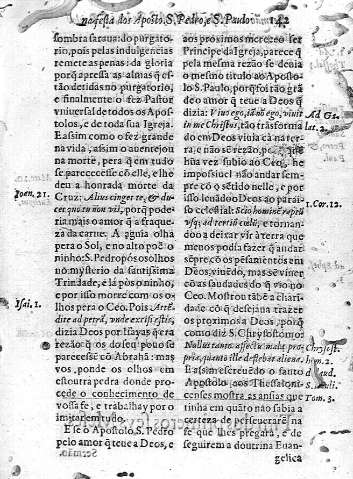 na festa dos Apost. S. Pedro, e S. Paulo. 142
sombra saraua: do purgato-
rio, pois pelas indulgencias
remete as penas: da gloria
porq̃ apressa as almas q̃ es-
tão detidas no purgatorio,
e finalmente o fez Pastor
vniuersal de todos os Aposto-
los, e de toda sua Igreja.
E assim como o fez grande
na vida, assim o auentejou
na morte, pera q̃ em tudo
se parecesse cõ elle, e lhe
deu a honrada morte da
Cruz: Alius cinget te, & du-
cet quo tu non vis, porq̃ pode-
ria mais o amor q̃ a fraque-
za da carne. A aguia olha
pera o Sol, e no alto põe o
ninho: S. Pedro pòs os olhos
no mysterio da santissima
Trindade, e là pòs o ninho,
e por isso morre com os o-
lhos pera o Ceo. Pois Atten-
dite ad petrã, vnde excisi estis,
dizia Deos por Isayas q̃ era
rezão q̃ os do seu pouo se
parecessẽ cõ Abrahã: mas
vos, ponde os olhos em
estoutra pedra donde pro-
cede o conhecimento de
vossa fé, e trabalhay por o
imitar em tudo.
E se o Apostolo S. Pedro
pelo amor q̃ teue a Deos, e
Ioen. 21.
Isai. 1.
aos proximos mereceo ser
Principe da Igreja, parece q̃
pela mesma rezão se deuia
o mesmo titulo ao Aposto-
lo S. Paulo, porq̃ foi tão grã
de o amor q̃ teue a Deos q̃
dizia: Viuo ego, iã nõ ego, viuit
in me Christus, tão trãsforma
do em Deos viuia cà na ter-
ra, e não se rezão, pois
hũa vez subio ao Ceo, he
impossiuel não andar sem-
pre cõ o sẽtido nelle, e por
isso leuado o Deos ao parai-
so celestial: Scio hominẽ raptũ
vsq; ad tertiũ cœlũ, e tornan-
do a deixar vir à terra que
menos podia fazer q̃ andar
sẽpre cõ os pesamẽtos em
Deos, viuẽdo, mas se viuer
cõ as saudades do q̃ vio no
Ceo. Mostrou tãbẽ a chari-
dade cõ q̃ desejana trazer
os proximos a Deos, porq̃
como diz S. Chrysostomo:
Nullus tanto affectu mala pro-
pria, quanto ille deflebat aliena.
E assim escreuẽdo o santo
Apostolo aos Thessaloni-
censes mostra as ansias que
tinha em quãto não sabia a
certeza de perseuerarẽ na
fe que lhes prégara, e de
seguirem a doutrina Euan-
gelica
Ad Ga-
lat. 2.
1. Cor. 12.
Chrysost.
hom. 2.
Tom. 3.